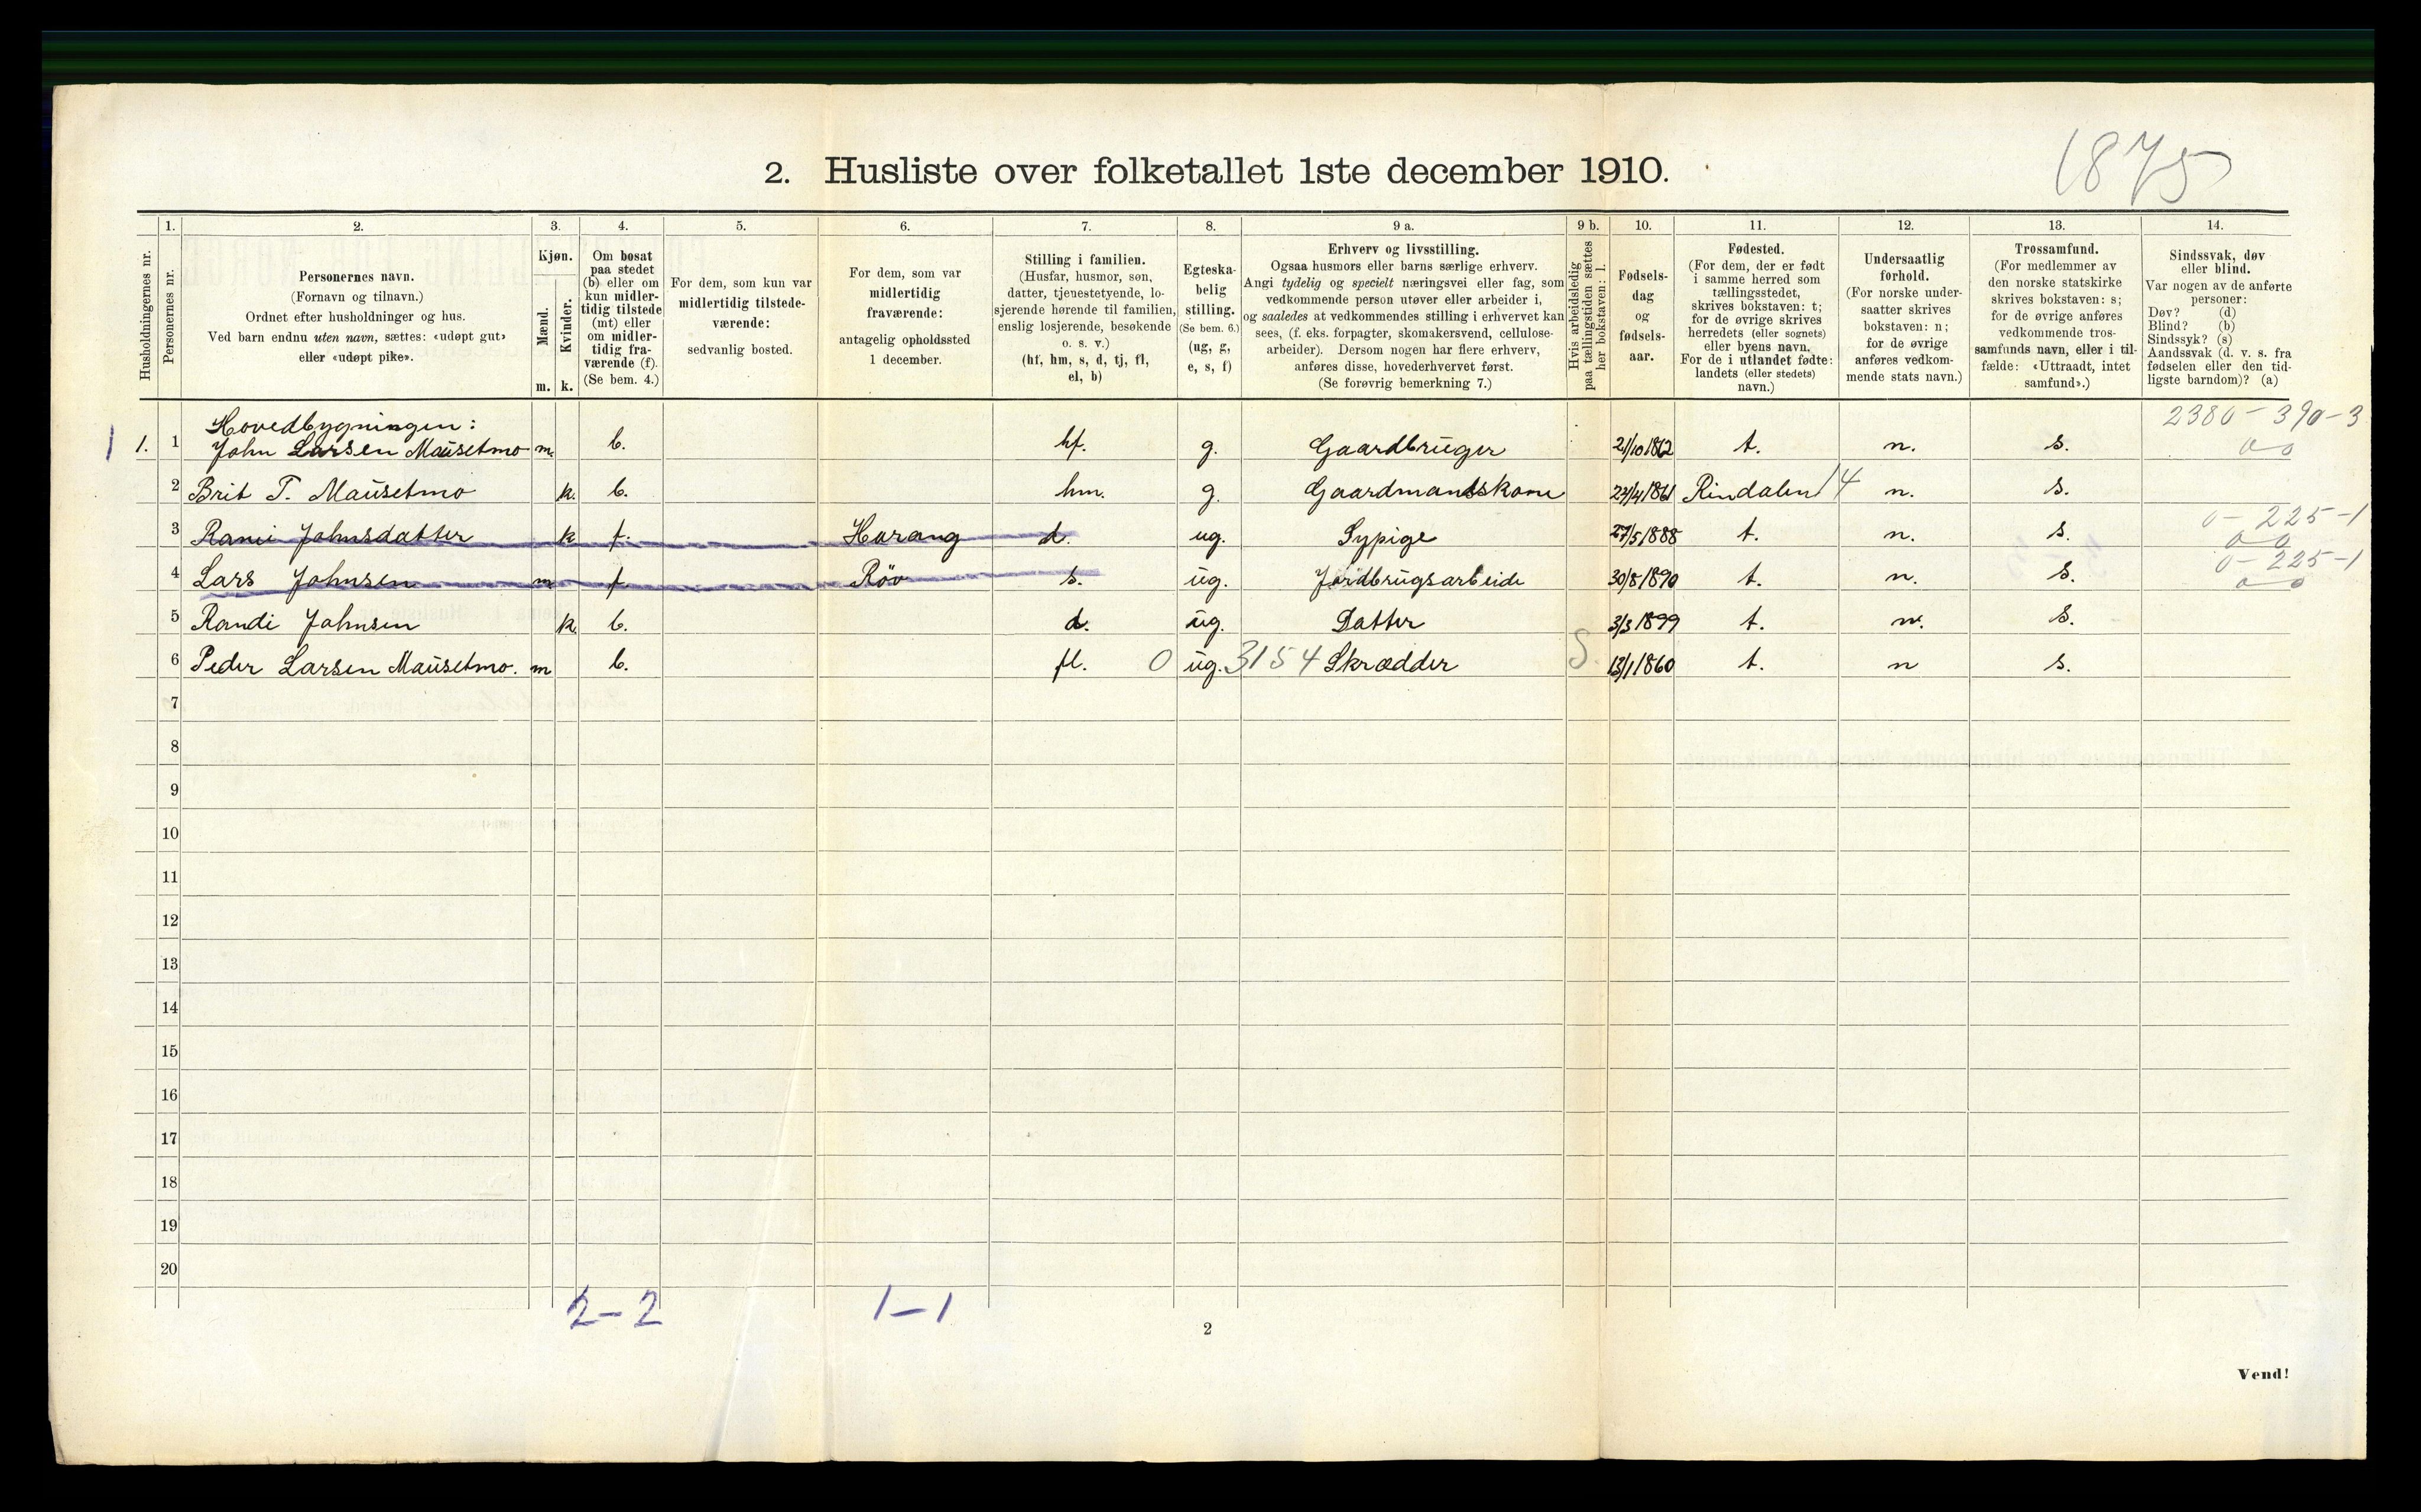 1875
2. Husliste over folketallet 1ste december 1910.
1. 2. 3. 4. 5. 6. 7. 8. 9 a. 9 b. 10. 11. 12. 13. 14.
Husholdningernes nr.
Personernes nr.
Personernes navn.
(Fornavn og tilnavn.)
Ordnet efter husholdninger og hus.
Ved barn endnu uten navn, sættes: «udøpt gut»
eller «udøpt pike».
Kjøn.
Mænd.
Kvinder.
m. k.
Om bosat
paa stedet
(b) eller om
kun midler-
tidig tilstede
(mt) eller
om midler-
tidig fra-
værende (f).
(Se bem. 4.)
For dem, som kun var
midlertidig tilstede-
værende:
sedvanlig bosted.
For dem, som var
midlertidig
fraværende:
antagelig opholdssted
1 december.
Stilling i familien.
(Husfar, husmor, søn,
datter, tjenestetyende, lo-
sjerende hørende til familien,
enslig losjerende, besøkende
o. s. v.)
(hf, hm, s, d, tj, fl,
el, b)
Egteska-
belig
stilling.
(Se bem. 6.)
(ug, g,
e, s, f)
Erhverv og livsstilling.
Ogsaa husmors eller barns særlige erhverv.
Angi tydelig og specielt næringsvei eller fag, som
vedkommende person utøver eller arbeider i,
og saaledes at vedkommendes stilling i erhvervet kan
sees, (f. eks. forpagter, skomakersvend, cellulose-
arbeider). Dersom nogen har flere erhverv,
anføres disse, hovederhvervet først.
(Se forøvrig bemerkning 7.)
Hvis arbeidsledig
paa tællingstiden sættes
her bokstaven: l.
Fødsels-
dag
og
fødsels-
aar.
Fødested.
(For dem, der er født
i samme herred som
tællingsstedet,
skrives bokstaven: t;
for de øvrige skrives
herredets (eller sognets)
eller byens navn.
For de i utlandet fødte:
landets (eller stedets)
navn.)
Undersaatlig
forhold.
(For norske under-
saatter skrives
bokstaven: n;
for de øvrige
anføres vedkom-
mende stats navn.)
Trossamfund.
(For medlemmer av
den norske statskirke
skrives bokstaven: s;
for de øvrige anføres
vedkommende tros-
samfunds navn, eller i til-
fælde: «Uttraadt, intet
samfund».)
Sindssvak, døv
eller blind.
Var nogen av de anførte
personer:
Døv? (d)
Blind? (b)
Sindssyk? (s)
Aandssvak (d. v. s. fra
fødselen eller den tid-
ligste barndom)? (a)
Hovedbygningen: 2380-390-3
1 1. 1 John Larsen Mausetmo m. b. hf. g. Gaardbruger 21/10 1862 t. n. s. 0 0
2 Brit T. Mausetmo k. b. hm. g. Gaardmandskone 24/4 1861 Rindalen 14 n. s.
0-225-1
3 Rani Johnsdatter k f. Harang d. ug. Sypige 27/5 1888 t. n. s. 0 0
0-225-1
4 Lars Johnsen m f Röv s. ug. Jordbrugsarbeide 30/8 1890 t. n. s. 0 0
5 Randi Johnsen k. b. d. ug. Datter 3/3 1899 t. n. s.
6 Peder Larsen Mausetmo. m b. fl. 0 ug. 3154 Skrædder S. 13/1 1860 t. n s.
7
8
9
10
11
12
13
14
15
16
17
18
19
20
2-2 1-1
2
Vend!